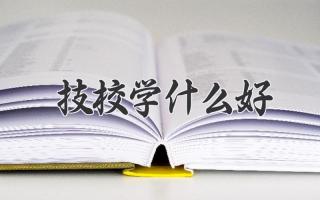 技校学什么好